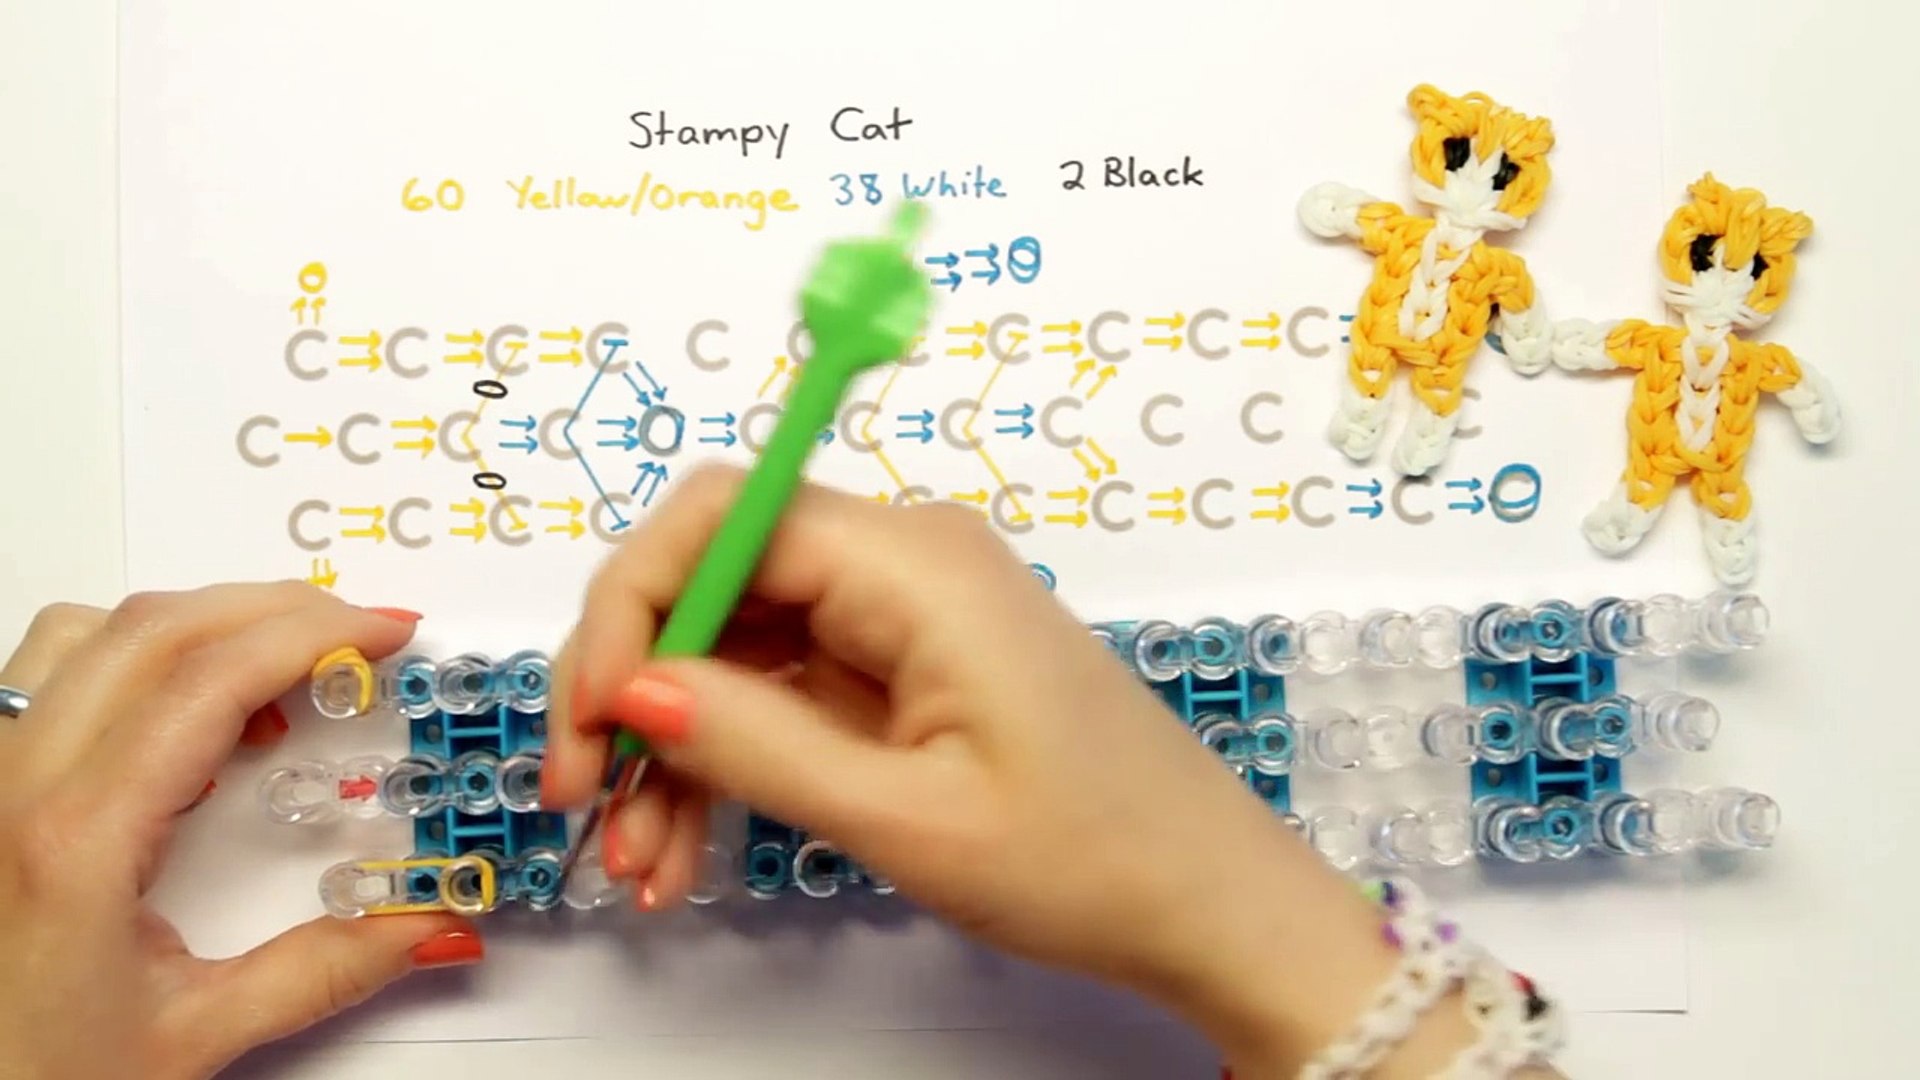 Stampy Cat
60 Yellow/Orange 38 White 2 Black